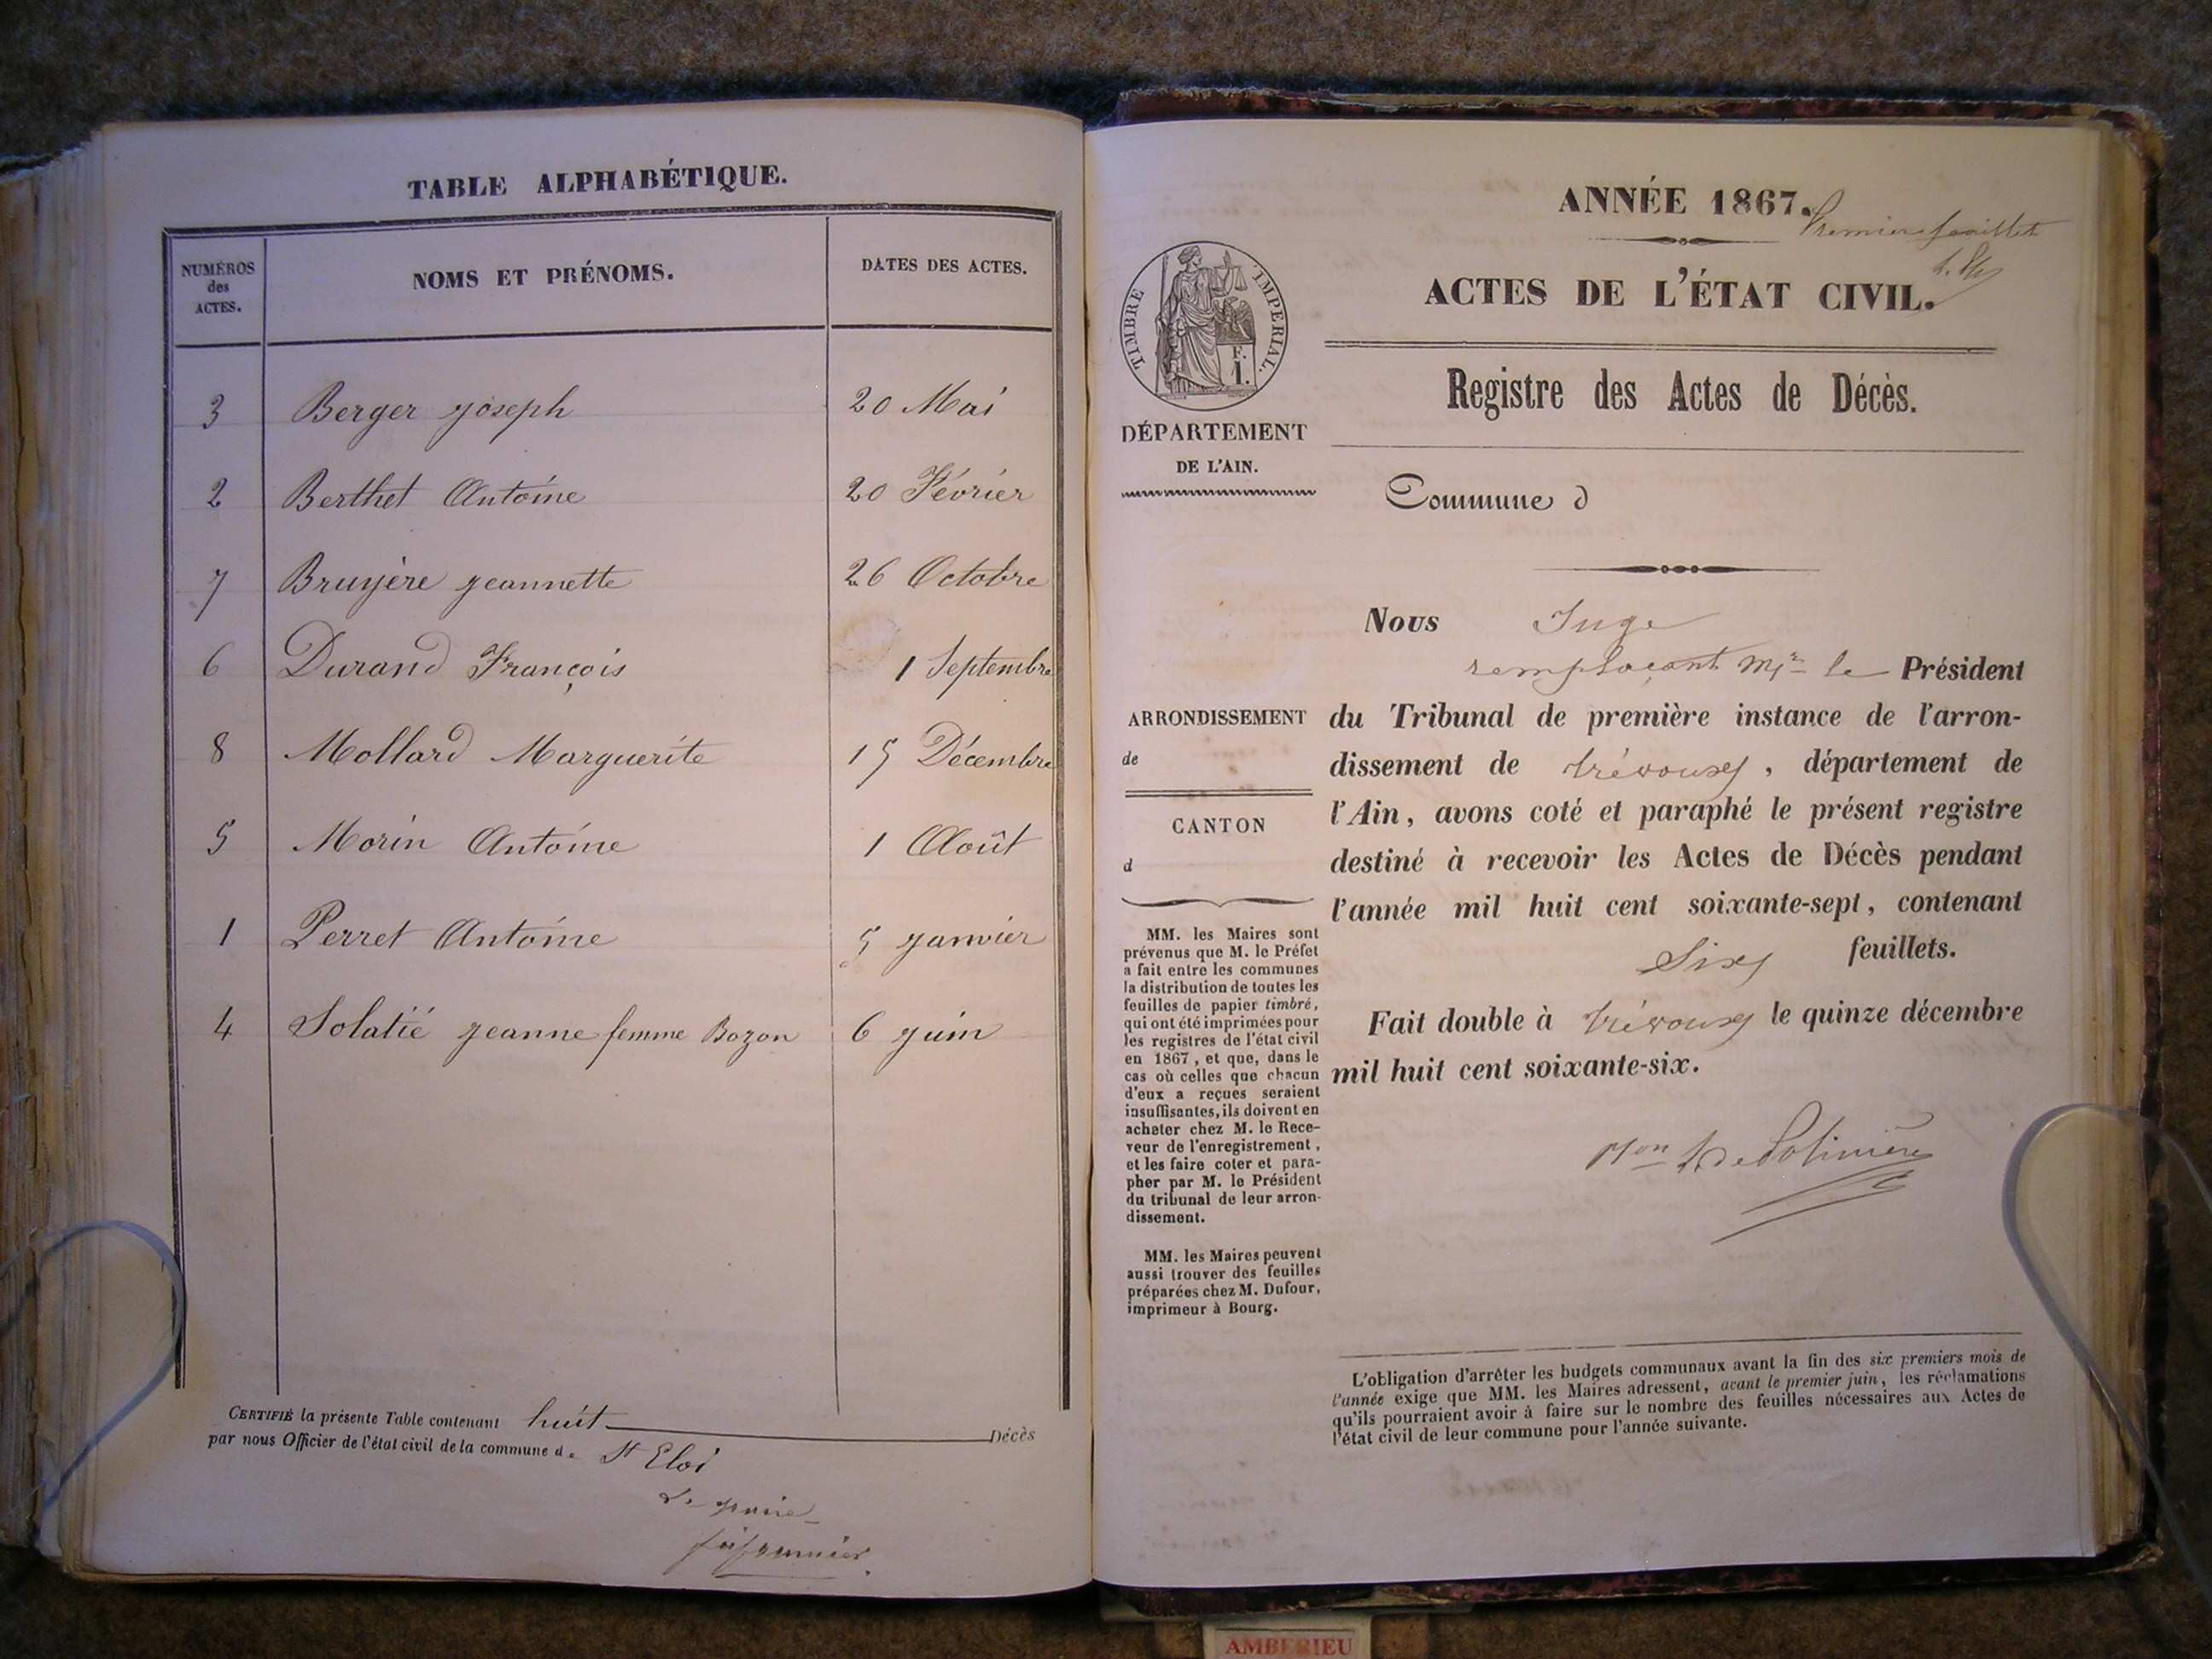 TABLE ALPHABÉTIQUE.
NUMÉROS des ACTES.
NOMS ET PRÉNOMS.
DATES DES ACTES.
3 Berger joseph 20 Mai
2 Berthet Antoine 20 Février
7 Bruyère jeannette 26 Octobre
6 Durand François 1 Septembre
8 Mollard Marguerite 15 Décembre
5 Morin Antoine 1 Août
1 Perret Antoine 5 janvier
4 Solatié jeanne femme Bozon 6 juin
CERTIFIÉ la présente Table contenant huit Décès
par nous Officier de l'état civil de la commune d. St Eloi
Le maire
ANNÉE 1867.
Premier feuillet
ACTES DE L'ÉTAT CIVIL.
Registre des Actes de Décès.
TIMBRE IMPERIAL.
F.
1.
DÉPARTEMENT
DE L'AIN.
Commune d
ARRONDISSEMENT
de
CANTON
d
MM. les Maires sont
prévenus que M. le Préfet
a fait entre les communes
la distribution de toutes les
feuilles de papier timbré,
qui ont été imprimées pour
les registres de l'état civil
en 1867, et que, dans le
cas où celles que chacun
d'eux a reçues seraient
insuffisantes, ils doivent en
acheter chez M. le Rece-
veur de l'enregistrement,
et les faire coter et para-
pher par M. le Président
du tribunal de leur arron-
dissement.
MM. les Maires peuvent
aussi trouver des feuilles
préparées chez M. Dufour,
imprimeur à Bourg.
Nous Juge
remplaçant Mr le Président
du Tribunal de première instance de l'arron-
dissement de trévoux, département de
l'Ain, avons coté et paraphé le présent registre
destiné à recevoir les Actes de Décès pendant
l'année mil huit cent soixante-sept, contenant
Six feuillets.
Fait double à trévoux le quinze décembre
mil huit cent soixante-six.
L'obligation d'arrêter les budgets communaux avant la fin des six premiers mois de
l'année exige que MM. les Maires adressent, avant le premier juin, les réclamations
qu'ils pourraient avoir à faire sur le nombre des feuilles nécessaires aux Actes de
l'état civil de leur commune pour l'année suivante.
AMBERIEU